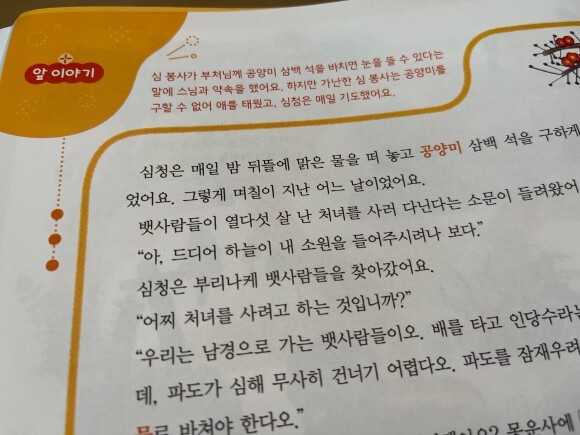 앞 이야기
심 봉사가 부처님께 공양미 삼백 석을 바치면 눈을 뜰 수 있다는
말에 스님과 약속을 했어요. 하지만 가난한 심 봉사는 공양미를
구할 수 없어 애를 태웠고, 심청은 매일 기도했어요.
심청은 매일 밤 뒤뜰에 맑은 물을 떠 놓고 공양미 삼백 석을 구하게
었어요. 그렇게 며칠이 지난 어느 날이었어요.
뱃사람들이 열다섯 살 난 처녀를 사러 다닌다는 소문이 들려왔어
“아, 드디어 하늘이 내 소원을 들어주시려나 보다.”
심청은 부리나케 뱃사람들을 찾아갔어요.
“어찌 처녀를 사려고 하는 것입니까?”
“우리는 남경으로 가는 뱃사람들이오. 배를 타고 인당수라는
데, 파도가 심해 무사히 건너기 어렵다오. 파도를 잠재우려
물로 바쳐야 한다오.”